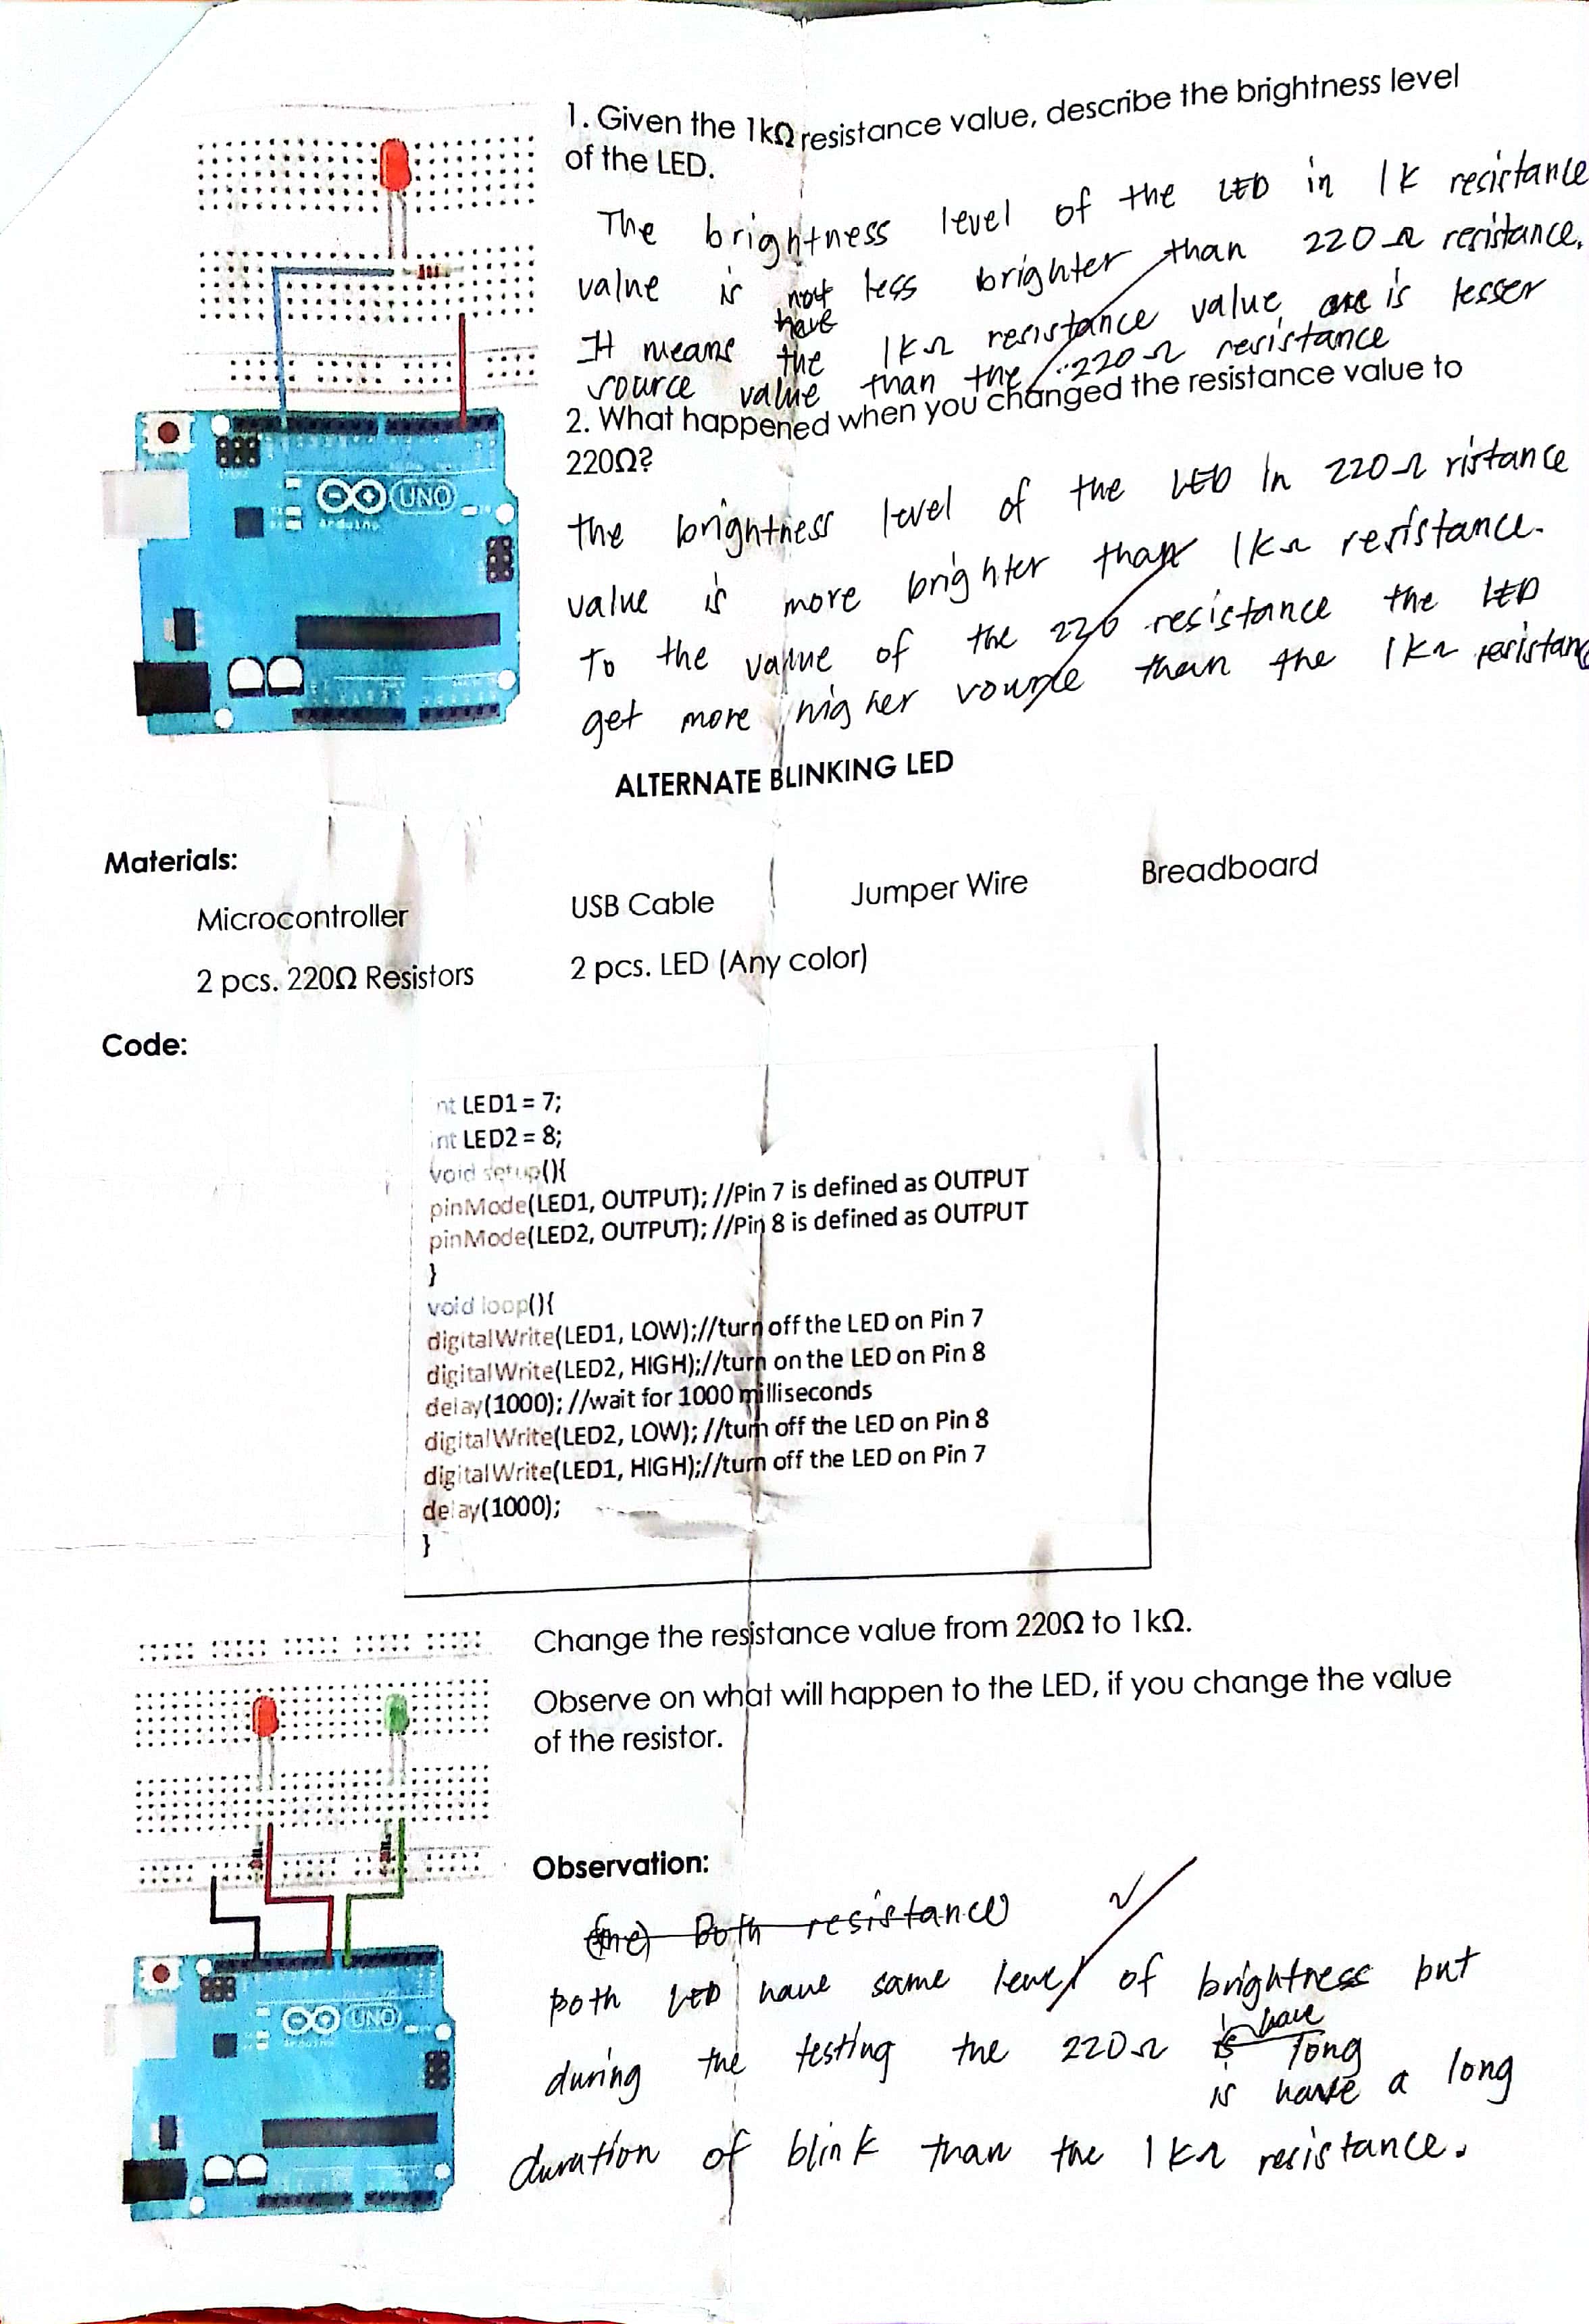 1. Given the 1kΩ resistance value, describe the brightness level
of the LED.
The brightness level of the LED in 1K resistance
value is not less brighter than 220Ω resistance.
have
It means the 1KΩ resistance value are is lesser
source value than the 220Ω resistance
2. What happened when you changed the resistance value to
220Ω?
the brightness level of the LED In 220Ω ristance
value is more brighter than 1KΩ resistance.
To the value of the 220 resistance the LED
get more higher than the 1KΩ resistanc
UNO
Arduino
ALTERNATE BLINKING LED
Materials:
Microcontroller USB Cable Jumper Wire Breadboard
2 pcs. 220Ω Resistors 2 pcs. LED (Any color)
Code:
int LED1 = 7;
int LED2 = 8;
void setup(){
pinMode(LED1, OUTPUT); //Pin 7 is defined as OUTPUT
pinMode(LED2, OUTPUT); //Pin 8 is defined as OUTPUT
}
void loop(){
digitalWrite(LED1, LOW);//turn off the LED on Pin 7
digitalWrite(LED2, HIGH);//turn on the LED on Pin 8
delay(1000); //wait for 1000 milliseconds
digitalWrite(LED2, LOW); //turn off the LED on Pin 8
digitalWrite(LED1, HIGH);//turn off the LED on Pin 7
delay(1000);
}
Change the resistance value from 220Ω to 1kΩ.
Observe on what will happen to the LED, if you change the value
of the resistor.
Observation:
Both resistance
both LED have same level of brightness but
have
during the testing the 220Ω is long
is have a long
duration of blink than the 1KΩ resistance.
UNO
Arduino